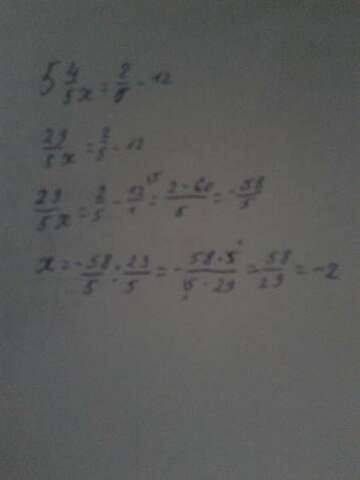 5 4/5 x = 2/5 - 12
29/5 x = 2/5 - 12
29/5 x = 2/5 - 12/1 = 2-60/5 = -58/5
x = -58/5 : 29/5 = -58·5/5·29 = 58/29 = -2